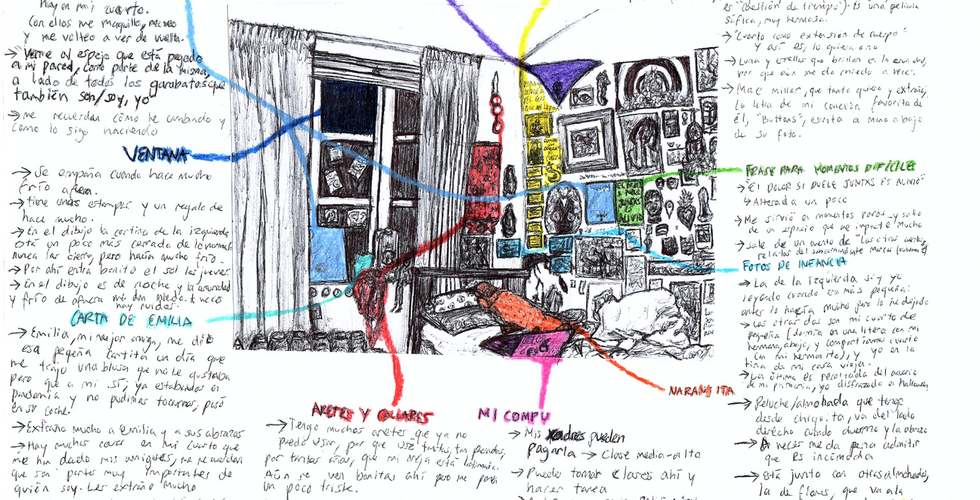 hay en mi cuarto.
Con ellos me maquillo, me veo
y me volteo a ver de vuelta.
→ Verme al espejo que está pegado
a mi pared, como parte de la misma,
a lado de todos los garabatos que
también son/soy, yo
→ me recuerdan cómo he cambiado y
cómo lo sigo haciendo
VENTANA
→ Se empaña cuando hace mucho
frío afuera.
→ tiene unas estampas y un regalo de
hace mucho.
→ En el dibujo la cortina de la izquierda
está un poco más cerrada de lo normal
nunca las cierro, pero hacía mucho frío.
→ Por ahí entra bonito el sol los jueves
→ En el dibujo es de noche y la oscuridad
y frío de afuera me dan miedo. A veces
hay ruidos.
CARTA DE EMILIA
→ Emilia, mi mejor amiga, me dió
esa pequeña cartita un día que
me trajo una blusa que no le gustaba
pero que a mi sí, ya estabamos en
pandemia y no pudimos tocarnos, pasó
en su coche.
→ Extraño mucho a Emilia y a sus abrazos
→ Hay muchas cosas en mi cuarto que
me han dado mis amigues, me recuerdan
que son parte muy importantes de
quién soy. Les extraño mucho
ARETES Y COLLARES
→ Tengo muchos aretes que ya no
puedo usar, por que usé tantos, tan pesados,
por tantos años, que mi oreja está lastimada.
Aún se ven bonitos ahí pero me pone
un poco triste.
MI COMPU
→ Mis padres pueden
pagarla → Clase media-alta
→ Puedo tomar clases ahí y
hacer tarea
NARANJITA
es "cuestión de tiempo"). Es una película
muy hermosa.
→ "Cuarto como extensión de cuerpo"
y así es, lo quiera o no
→ Luna y estrellas que brillan en la oscuridad,
por que aún me da miedo a veces.
→ Mac miller, que tanto quiero y extraño,
la letra de mi canción favorita de
él, "Buttons", escrita a mano abajo
de su foto.
FRASE PARA MOMENTOS DIFÍCILES
→ "EL DOLOR SI DUELE JUNTXS ES ALIVIO"
↳ Alterada un poco
→ Me sirvió a momentos raros y salió
de un espacio que me impactó mucho
→ Sale de un cuento de "Los otros cuentos,
relatos del subcomandante Marcos
FOTOS DE INFANCIA
→ La de la izquierda soy yo
leyendo cuando era más pequeña.
antes lo hacía mucho pero lo he dejado
→ Las otras dos son mi cuartito de
pequeña (dormía en una litera con mi
hermana, abajo, y compartíamos cuarto
con mi hermanito), y yo en la
tina de mi casa vieja.
→ La última es recortada del anuario
de mi primaria, yo disfrazada de
→ Peluche/almohada que tengo
desde chiquita, va del lado
derecho cuando duermo y la abrazo
→ A veces me da pena admitir
que es incómoda
→ Está junto con otras almohadas,
la de flores, que va a la